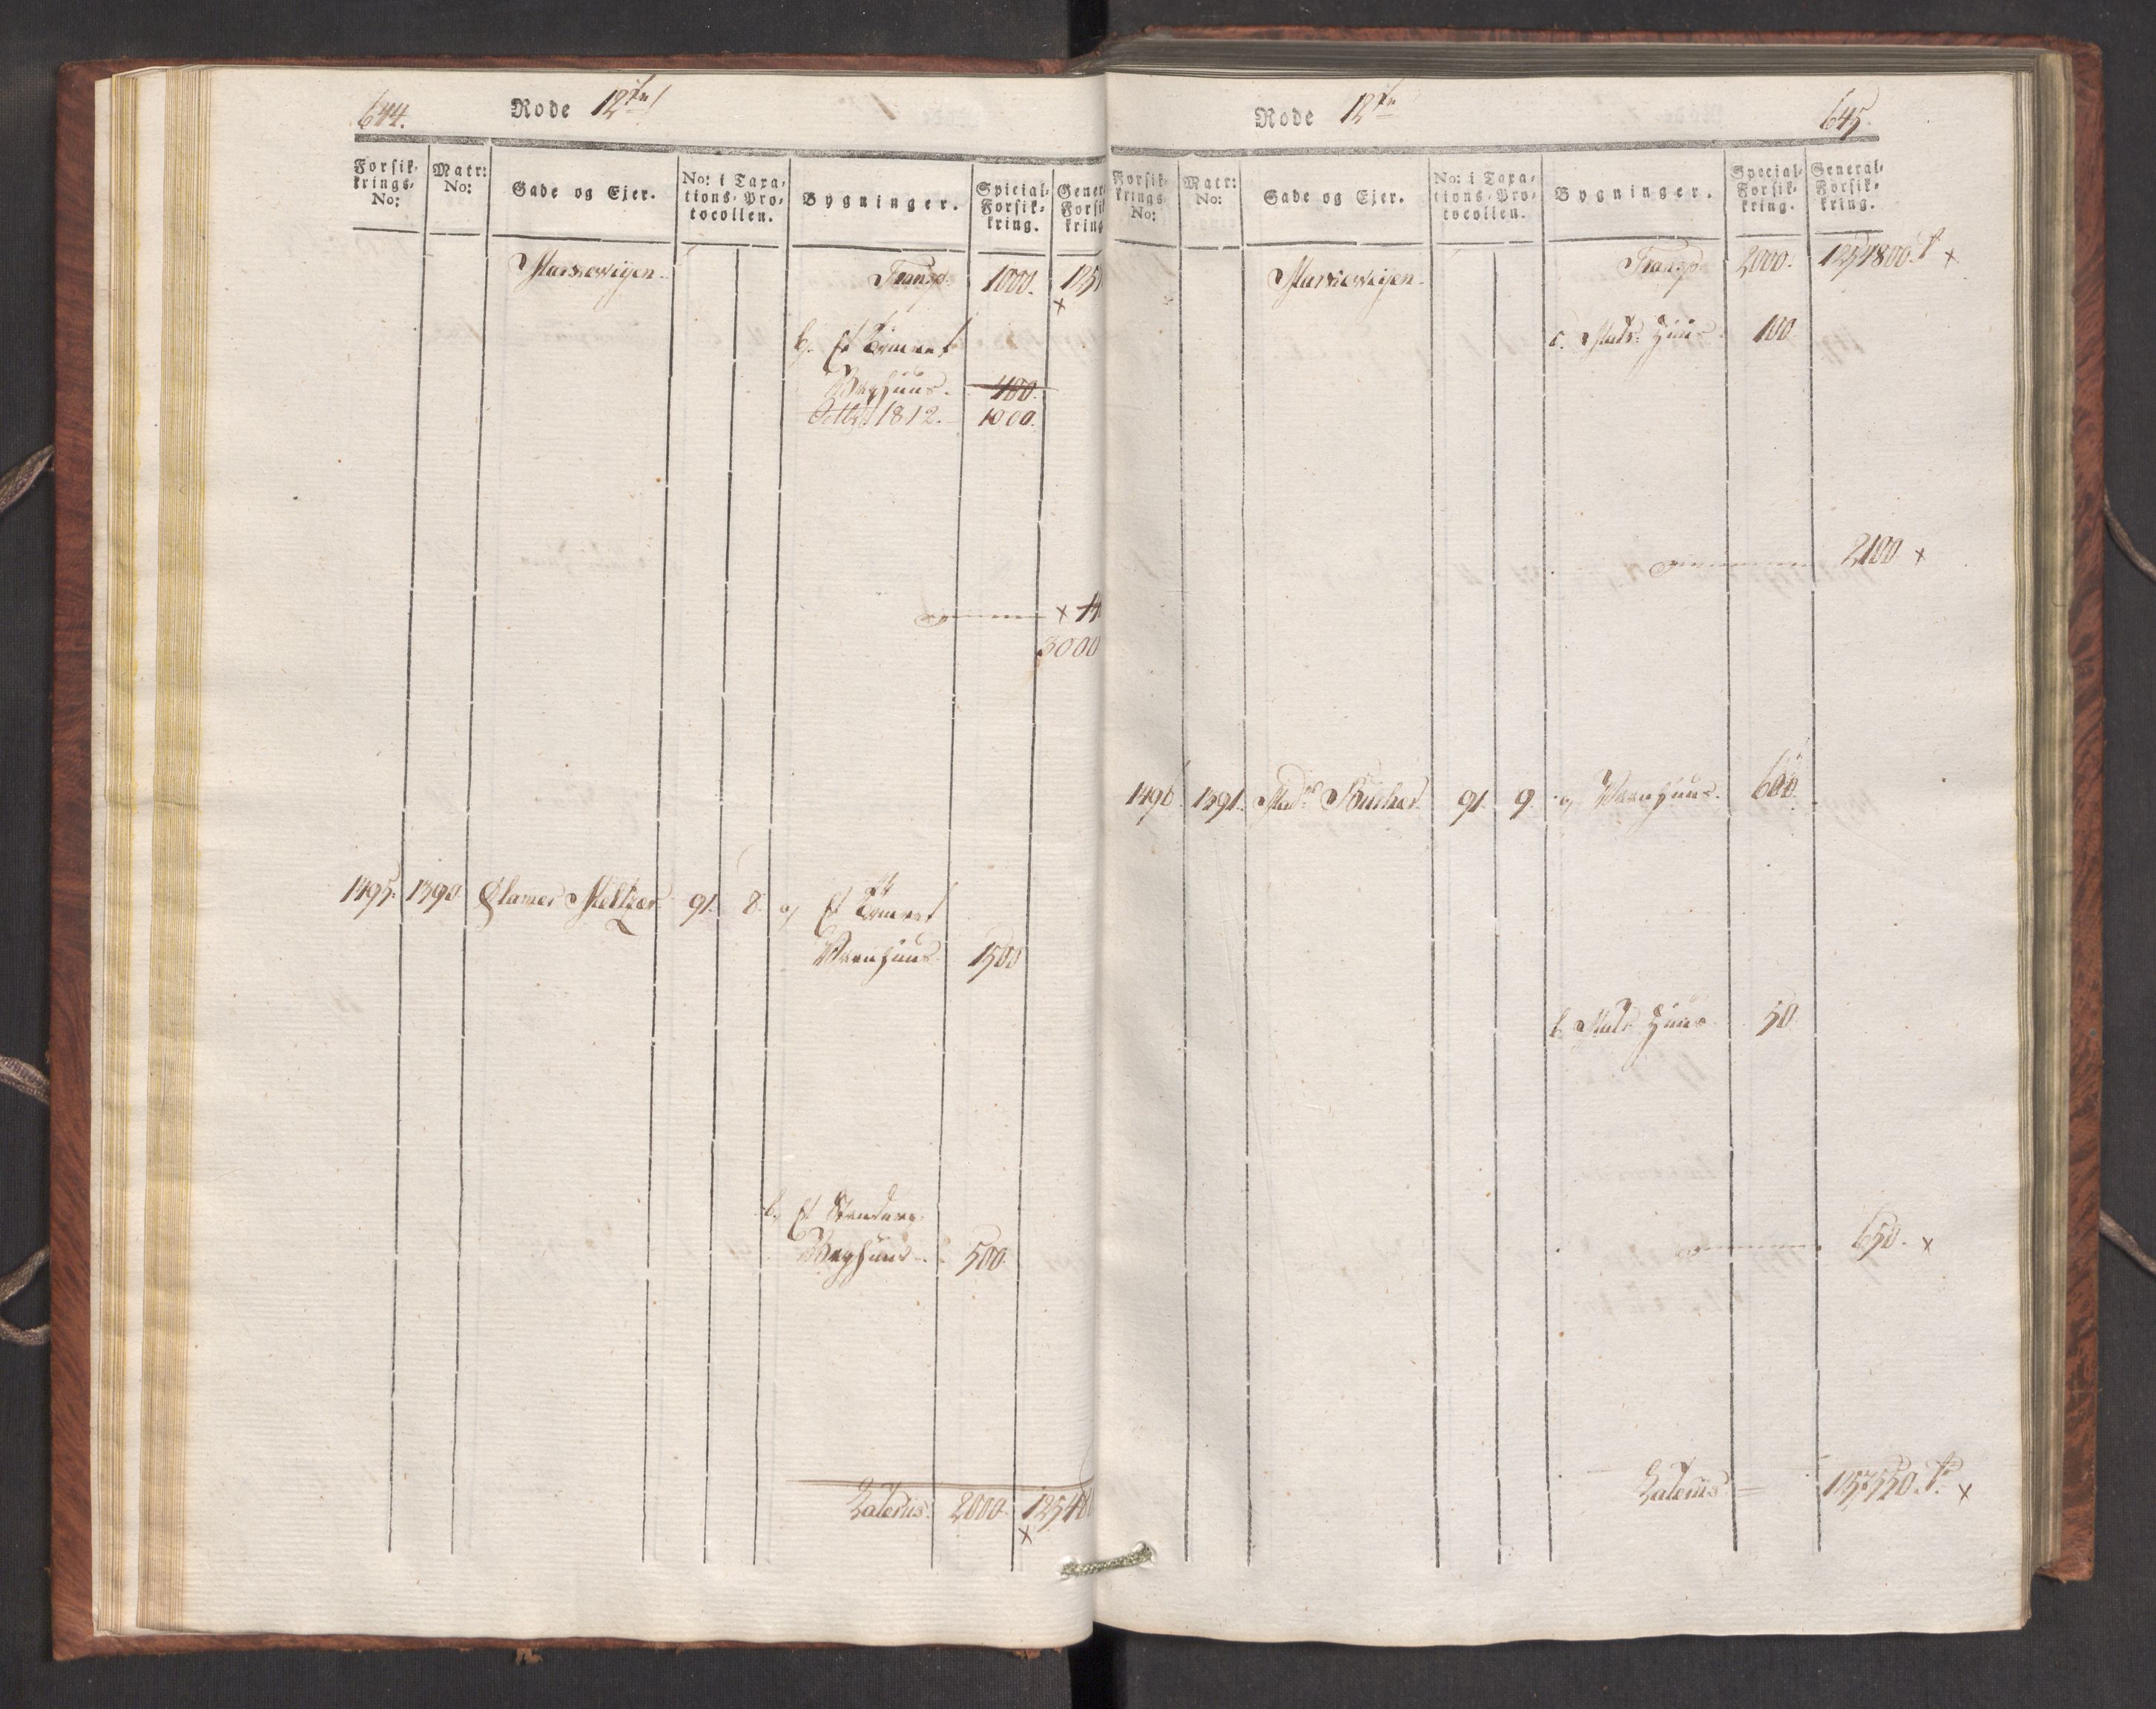 644.
Rode 12te
Forsik-
krings-
No:
Matr:
No:
Gade og Ejer.
No: i Taxa-
tions-Pro-
tocollen.
Bygninger.
Special-
Forsik-
kring.
Gener
Forsik
kring
Marrevigen.
Transp. 1000. 125
x
b. Et Tömret
Vaghuus. 400.
Octbr 1812. 1000.
x
3000
1495. 1390 Clamer Meltzer 91. 8. a, Et Tömret
Vaanhuus 1500
b, Et
Vaghuus 500.
Lateris. 2000. 12548
x
Rode 12te
645.
Forsik-
krings
No:
Matr:
No:
Gade og Ejer.
No: i Taxa-
tions-Pro-
tocollen.
Bygninger.
Special-
Forsik-
kring.
General-
Forsik-
kring.
Marrevigen.
Transp 2000. 1254800. x
c. Mats. Huus 100.
2100 x
1496. 1391. 91. 9. a, Vaanhuus. 600.
b. Mats Huus 50.
650. x
Lateris 1257550. x